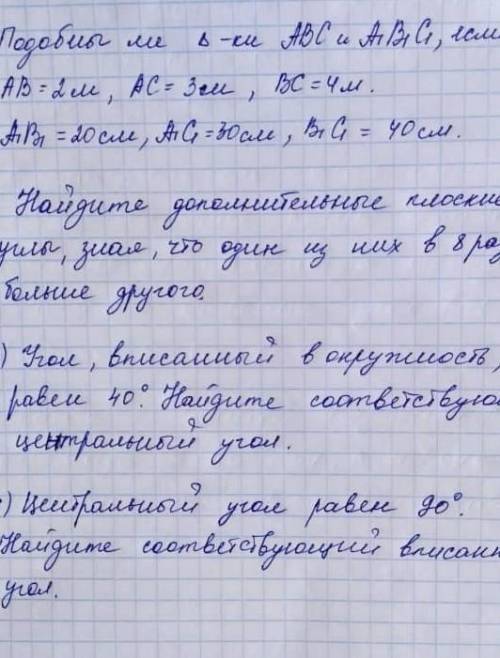 Подобны ли Δ-ки ABC и A₁B₁C₁, если
AB = 2м, AC = 3м, BC = 4м.
A₁B₁ = 20см, A₁C₁ = 30см, B₁C₁ = 40см.
Найдите дополнительные плоские
углы, зная, что один из них в 8 раз
больше другого.
) Угол, вписанный в окружность,
равен 40°. Найдите соответствую
центральный угол.
) Центральный угол равен 90°.
Найдите соответствующий вписанн
угол.